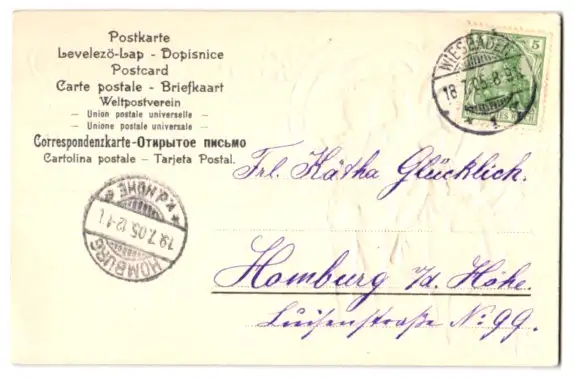 Postkarte
Levelező-Lap - Dopisnice
Postcard
Carte postale - Briefkaart
Weltpostverein
- Union postale universelle -
- Unione postale universale -
Correspondenzkarte-Открытое письмо
Cartolina postale - Tarjeta Postal.
WIESBADEN
5
Frl. Kätha Glücklich.
HOMBURG v.d. HÖHE
19.7.05.12-1
Homburg v/d. Höhe.
Luisenstraße No. 99.